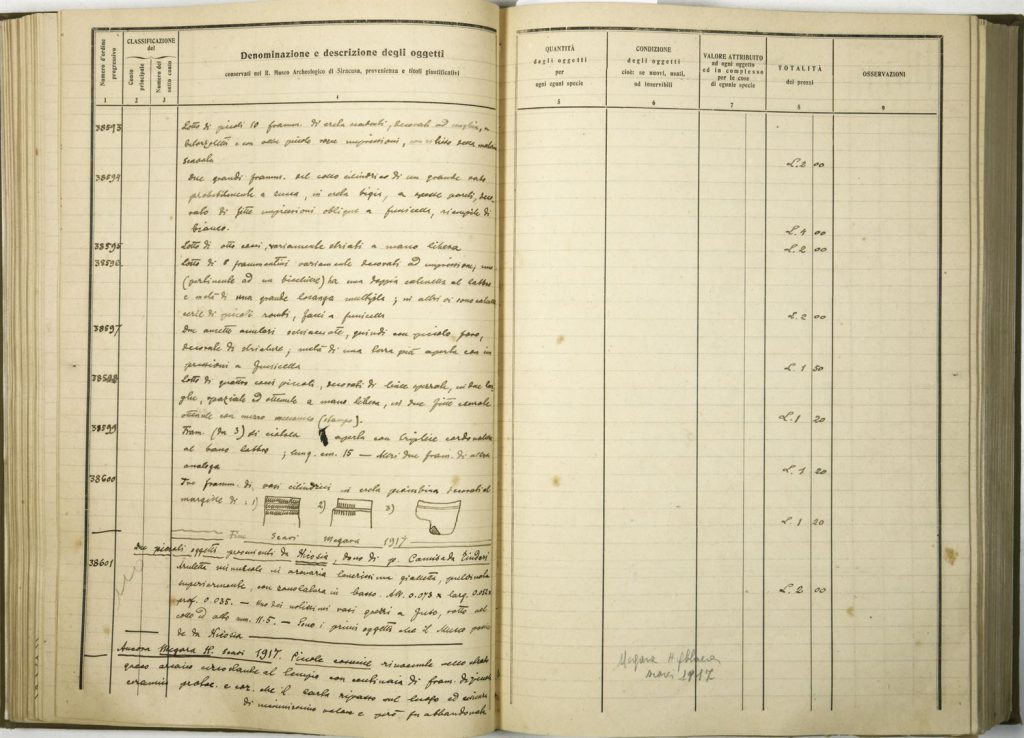 Numero d'ordine progressivo
CLASSIFICAZIONE del
Conto principale
Numero del sotto conto
Denominazione e descrizione degli oggetti
conservati nel R. Museo Archeologico di Siracusa, provenienza e titoli giustificativi
1 2 3 4
QUANTITÀ degli oggetti per ogni eguai specie
CONDIZIONE degli oggetti cioè: se nuovi, usati, od inservibili
VALORE ATTRIBUITO ad ogni oggetto ed in complesso per le cose di eguale specie
TOTALITÀ dei prezzi
OSSERVAZIONI
5 6 7 8 9
38593 Lotto di piccoli 10 framm. di creta scadenti, decorati ad
e con altre piccole impressioni,
L. 2 00
38594 Due grandi framm. del collo cilindrico di un grande vaso
probabilmente a zucca, in creta bigia, a spesse pareti, deco
rato di fitte impressioni oblique a funicella, riempite di
bianco.
L. 4 00
38595 Lotto di otto cocci, variamente striati a mano libera
L. 2 00
38596 Lotto di 8 frammentini variamente decorati ad impressione; uno
(pertinente ad un bicchiere) ha una doppia catenella al labbro
e metà di una grande losanga multipla; in altri vi sono catenelle
serie di piccoli rombi, fasci a funicella
L. 2 00
38597 Due ansette anulari schiacciate, quindi con piccolo foro,
decorate di striature; metà di una terza più aperta con im
pressioni a funicella
L. 1 50
38598 Lotto di quattro cocci piccoli, decorati di linee spezzate, in due lar
ghe, spaziate ed ottenute a mano libera, in due fitte
ottenute con mezzo meccanico (stampo).
L. 1 20
38599 Fram. (da 3) di ciotola aperta con triplice cordonatura
al basso labbro; lung. cm. 15 — Altri due fram. di altra
analoga
L. 1 20
38600 Tre framm. di vasi cilindrici in creta piombina decorati al
margine di: 1) 2) 3)
L. 1 20
Fine Scavi Megara 1917
Due piccoli oggetti provenienti da Nicosia dono di p. Camisada
38601 Aruletta minuscola in arenaria tenerissima gialletta, pulvinata
superiormente, con zoccolatura in basso. Alt. 0.073 x larg.
prof. 0.035. — Uno dei solitissimi vasi grezzi a fuso, rotto al
collo ed alto mm. 115. — Sono i primi oggetti che il Museo possie
de da Nicosia
L. 2 00
Ancora Megara H. Scavi 1917. Piccole rinvenute nello strato
greco arcaico circostante al tempio con centinaia di fram. di
ceramiche protoc. e cor. che li sul luogo ed essere
di minimissimo valore e però fu abbandonato
Megara Hyblaea
scavi 1917